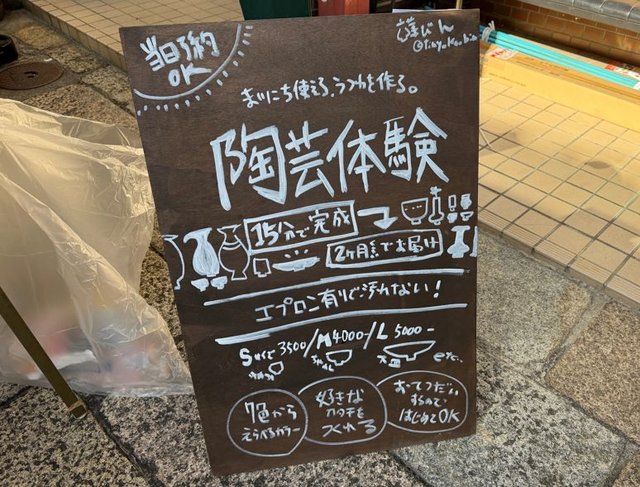 当日予約
OK
びん
まいにち使える、うつわを作る。
陶芸体験
15分で完成
2ヶ月系でお届け
エプロン有りで汚れない！
S 3500/M4000/L5000-
etc..
7色から
えらべるカラー
好きな
カタチを
つくれる
おてつだい
するので
はじめてOK